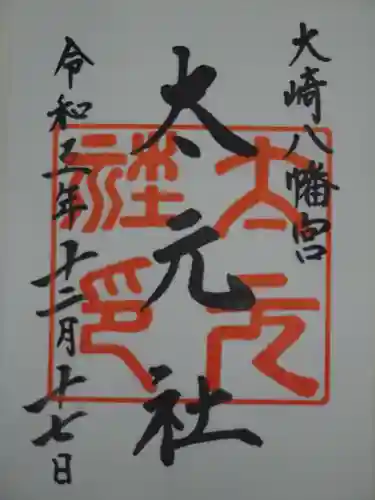 大崎八幡宮
太元社
令和五年十二月十七日
太元社印